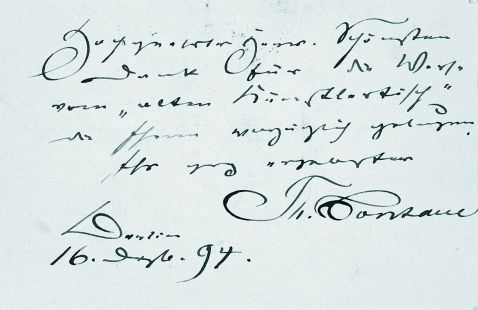 Hochgeehrter Herr. Schönsten
Dank für die Verse
vom „alten Künstlertisch“
die Ihnen vorzüglich gelungen.
Ihr ganz ergebenster
Th. Fontane
Berlin
16. Dezb. 94.